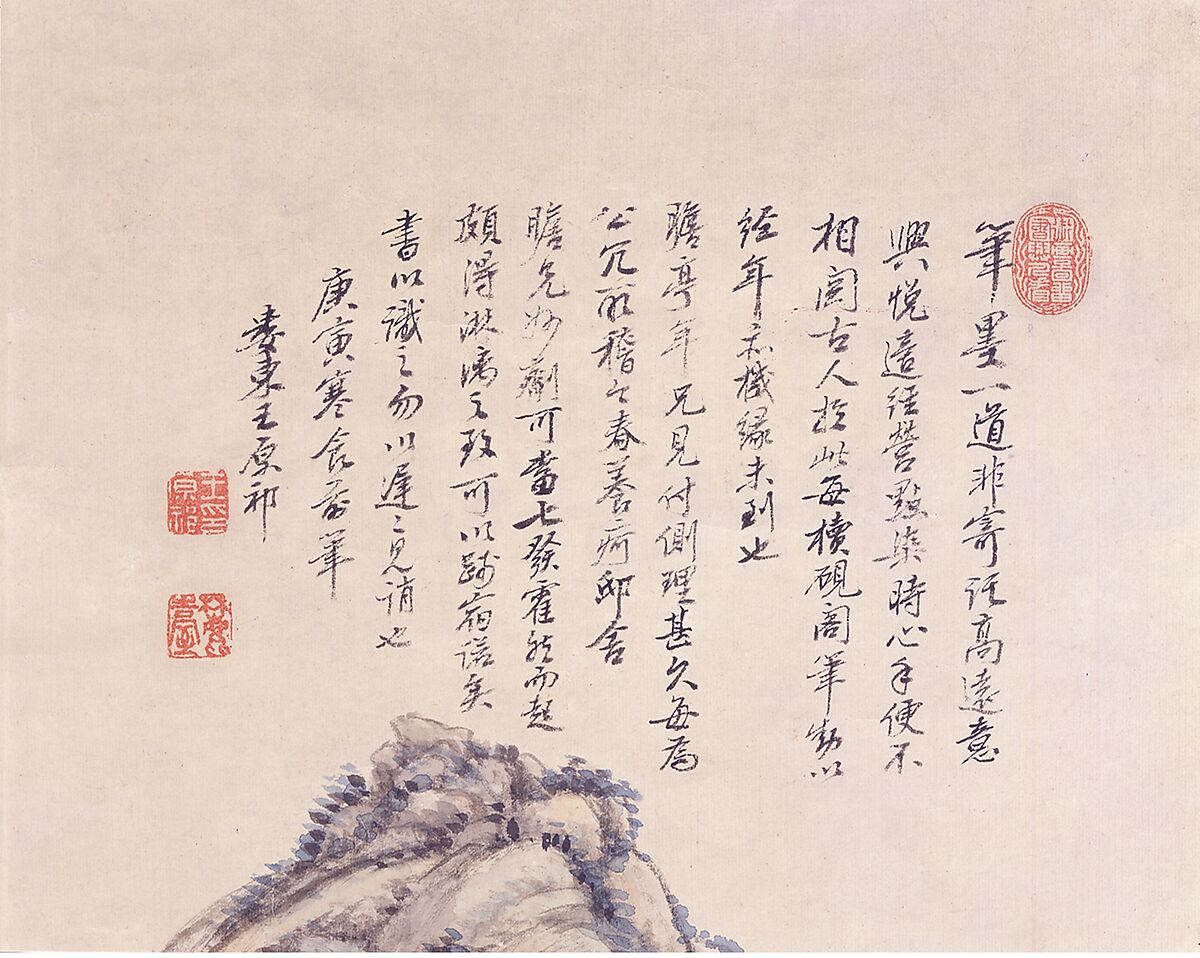 筆墨一道非寄託高遠意
興悅適經營點染時心手便不
相關古人於此每櫝硯閣筆動以
經年亦機緣未到也
瞻亭年兄見付側理甚久每為
公冗所稽今春養疴邸舍
瞻兄妙劑可當七發霍然而起
頗得淋漓之致可以踐宿諾矣
書以識之勿以遲遲見誚也
庚寅寒食前筆
婁東王原祁